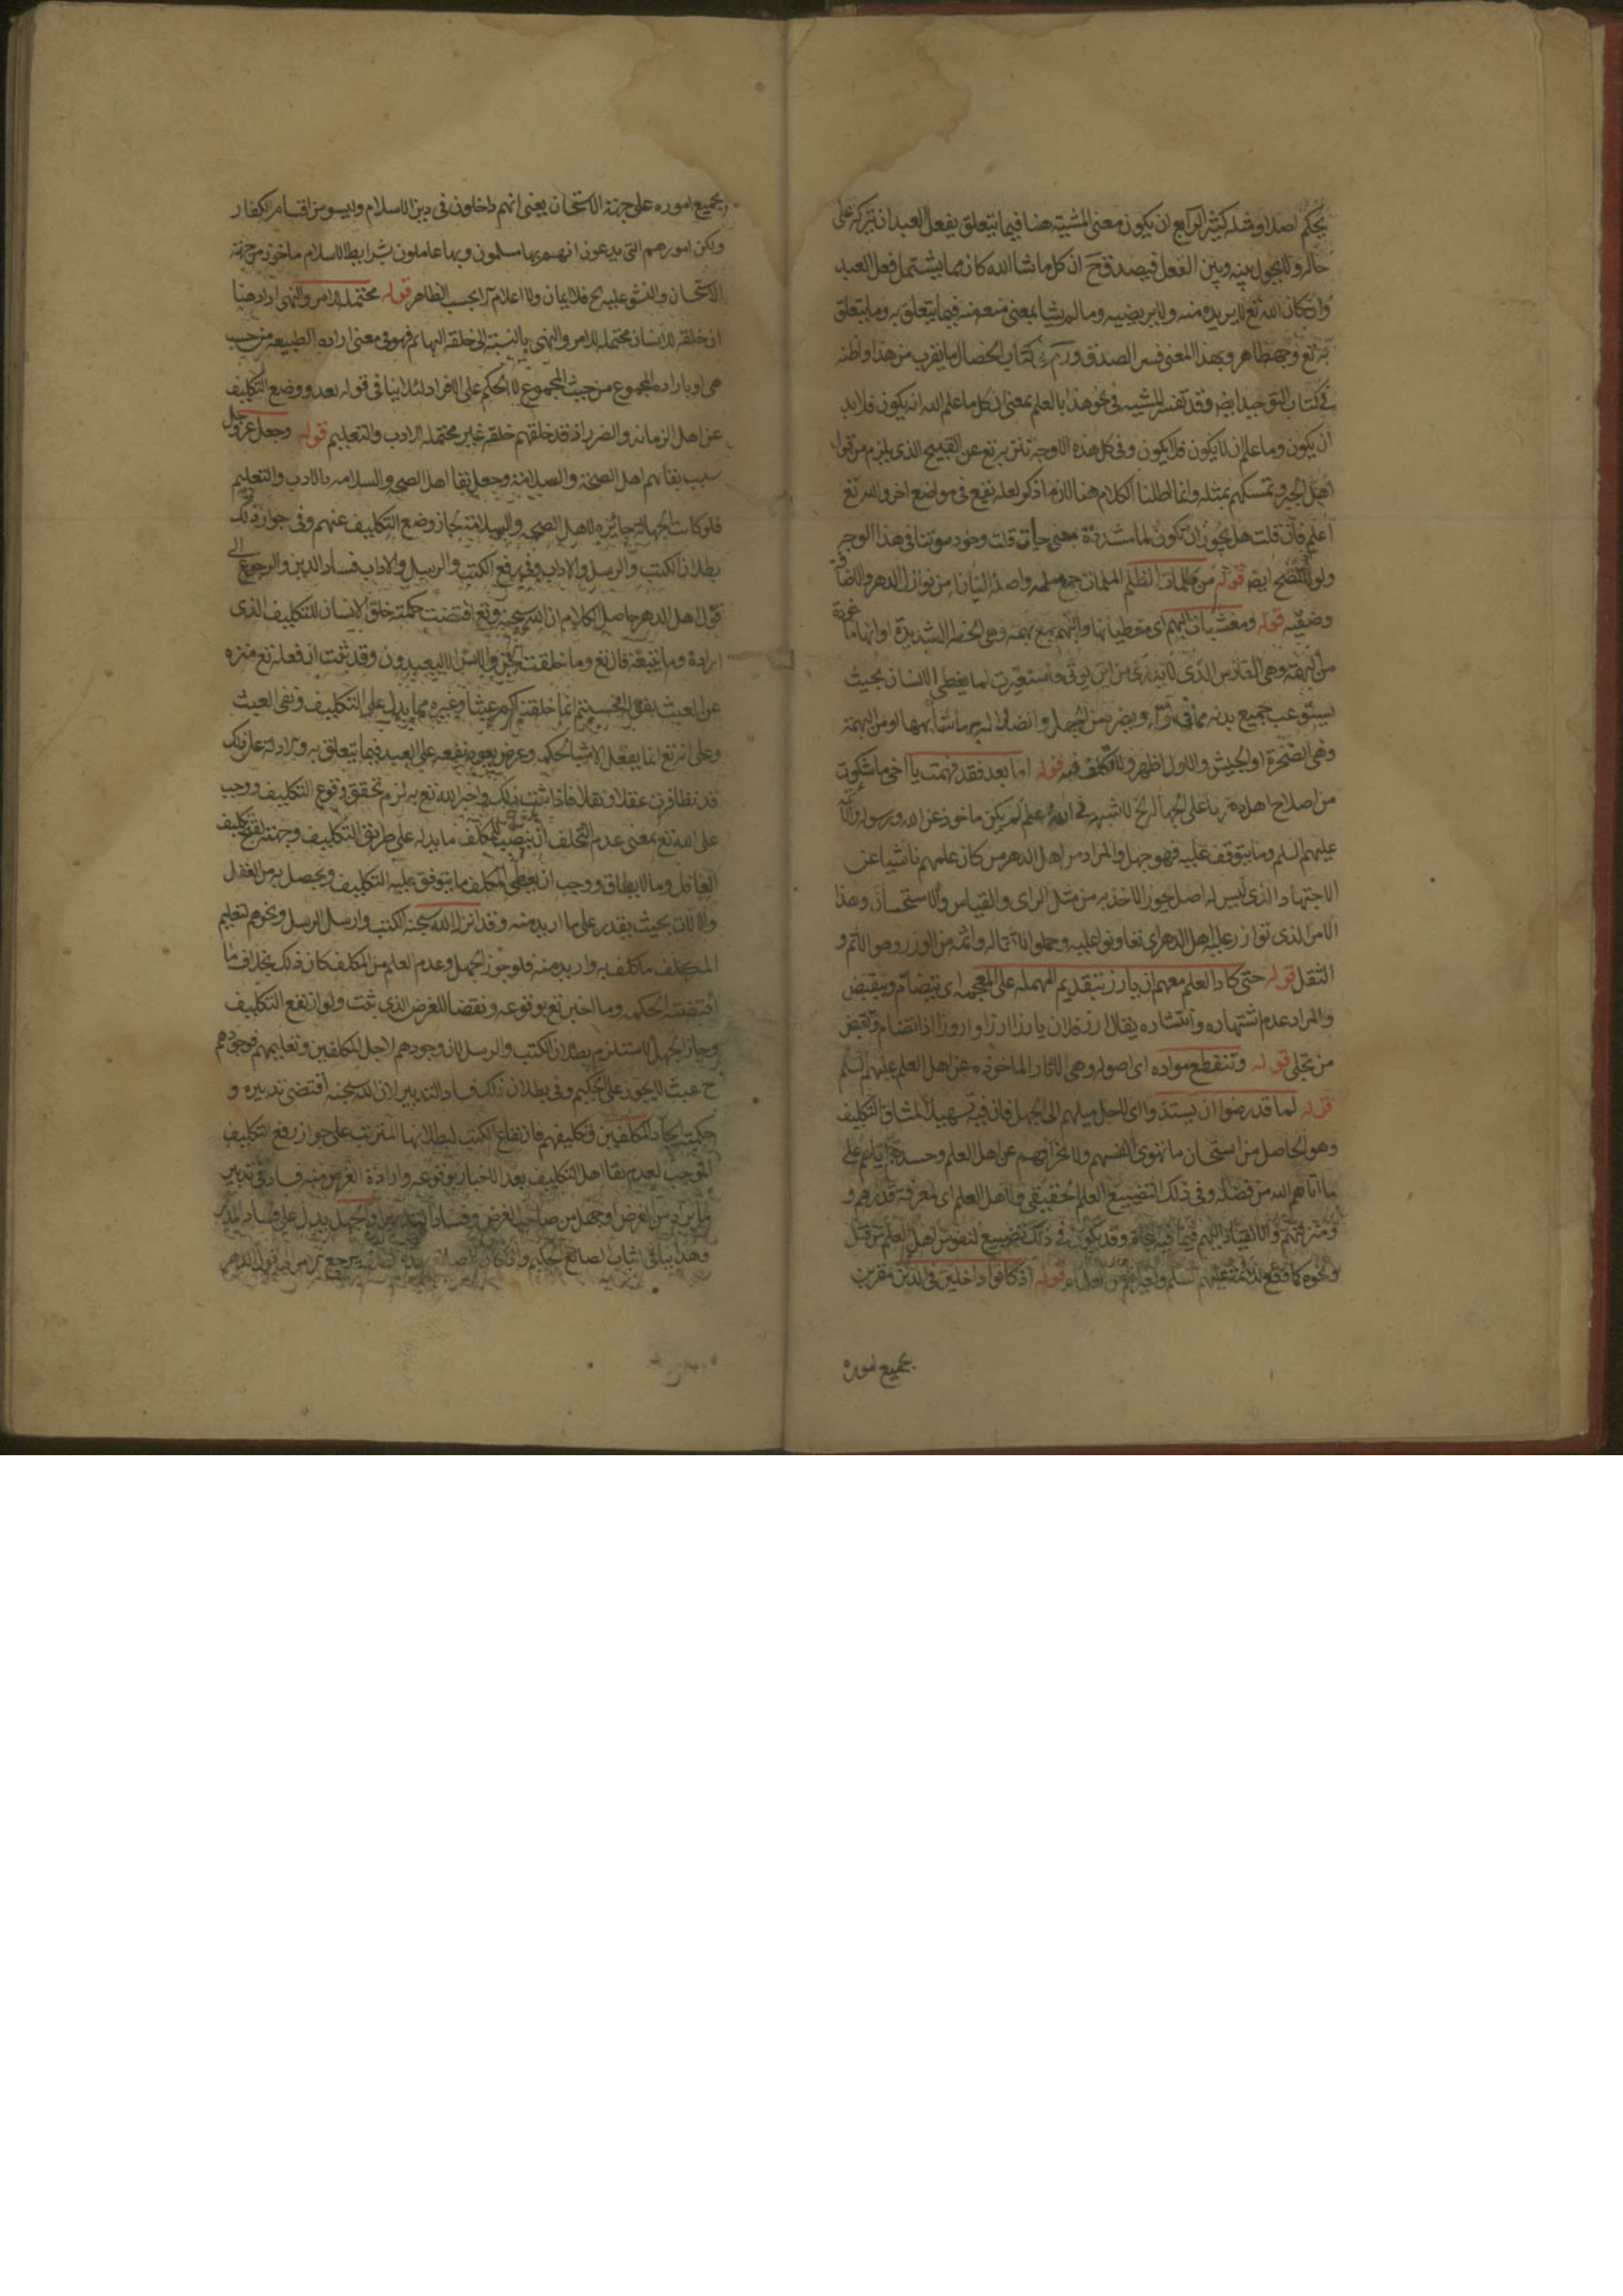 بحكم اصلا ومثله كثير الرابع ان يكون معنى المشية هنا فيما يتعلق بفعل العبد ان يتركه على
حاله ولا يحول بينه وبين الفعل فيصدق ح ان كل ما شا الله كان مما يشتمل فعل العبد
وان كان الله تع لا يريده منه ولا يرضيه وما لم يشا بمعنى منع منه فيما يتعلق به وما يتعلق
به تع وجهه ظاهر وبهذا المعنى فسر الصدوق ره في كتاب الخصال ما يقرب من هذا واظنه
في كتاب التوحيد ايضا وقد تفسر المشيه في نحو هذا بالعلم بمعنى ان كل ما علم الله انه يكون فلا بد
ان يكون وما علم ان لا يكون فلا يكون وفي كل هذه الاوجه تنزيه تع عن القبيح الذي يلزم من قول
اهل الجبر وتمسكهم بمثله وانما اطلنا الكلام هنا لان ما ذكر لعله ينفع في مواضع اخر والله تع
اعلم فان قلت هل يجوز ان تكون لما مشددة بمعنى حين قلت وجود في هذا الوجه
ولو ايضا قوله من ملمات الظلم الملمات جمع ملمه واصله من نوازل الدهر والاضافة
وضفيه قوله ومغشيات البهم اي مغطياتها والبهم جمع بهمه وهى الخطه الشديدة او انها ماخوذة
من البهمة وهى الفارس الذى لا يدرى من اين يوتى استعيرت لما يغطى الانسان بحيث
يستوعب جميع بدنه من الجهل او من البهمة
وهى الصخرة او الجيش والاول اظهر قوله اما بعد فقد فهمت يا اخى ما شكوت
من اصلاح اهل دهرنا على الجهالة الخ لا شبهه في ان علم لم يكن ماخوذ عن الله ورسوله
عليهم السلم وما يتوقف عليه فهو جهل والمراد من اهل الدهر من كان علمهم ناشيا عن
الاجتهاد الذى ليس له اصل جوز الاخذ به من مثل الراى والقياس والاستحسان وهذا
الامر الذى توازر عليه اهل الدهر اى تعاونوا عليه وحملوا اثقاله واثمه من الوزر وهو الاثم و
الثقل قوله حتى كاد العلم معهم ان يارز بتقديم المهمله على المعجمه اى ينضام وينقبض
والمراد عدم اشتهاره وانتشاره يقال ارز فلان يارز ارزا واروزا اذا تضام وتقبض
من بخل قوله وتنقطع مواده اى اصوله وهى الاثار الماخوذه عن اهل العلم عليهم السلم
قوله لما قد رضوا ان يستندوا اى لاجل ميلهم الى الجهل فان فيه تسهيلا لمشاق التكليف
وهو الحاصل من استحسان ما تهوى انفسهم ولانحرافهم عن اهل العلم وحسدهم على
ما اتاهم الله من فضله وفى ذلك تضييع العلم الحقيقى ولاهل العلم اى لمعرفة قدرهم و
ومنزلتهم والانقياد اليهم فيما فيه وقد يكون في ذلك تضييع لنفوس اهل العلم من قتل
ونحوه كما وقع للائمة عليهم السلم قوله اذ كانوا داخلين في الدين مقرين
بجميع اموره
بجميع اموره على جهة الاستحسان يعنى انهم داخلون في دين الاسلام وليسو من اقسام الكفار
ولكن امورهم التى يدعون انهم بها مسلمون وبها عاملون بشرايط الاسلام ماخوذ من جهة
الاستحسان والنشو عليه ح فلا ايمان ولا اعلام الا بحسب الظاهر قوله محتمله للامر والنهى اراد هنا
ان خلقه الانسان محتمله للامر والنهى بالنسبة الى خلقه البهائم فهو في معنى اراده الطبيعه من حيث
هى او باراده المجموع من حيث المجموع لا الحكم على الافراد لئلا ينافى قوله بعد ووضع التكليف
عن اهل الزمانه والضرر اذ قد خلقهم خلقه غير محتمله للادب والتعليم قوله وجعل عز وجل
سبب بقائهم اهل الصحة والسلامة وجعل بقا اهل الصحه والسلامه بالادب والتعليم
فلو كانت الجهاله جائزه لاهل الصحه والسلامة لجاز وضع التكليف عنهم وفى جواز ذلك
بطلان الكتب والرسل والاداب وفى رفع الكتب والرسل والاداب فساد الدين والرجوع الى
قول اهل الدهر حاصل الكلام ان الله سبحنه وتع اقتضت حكمته خلق الانسان للتكليف الذى
اراده وما يتبعه قال تع وما خلقت الجن والانس الا ليعبدون وقد ثبت ان فعله تع منزه
عن العبث بقوله افحسبتم انما خلقناكم عبثا وغيره مما يدل على التكليف ونفى العبث
وعلى انه تع انما يفعل الاشيا لحكمه وغرض يعود نفعه على العبد فيما يتعلق به والادلة على ذلك
قد تظافرت عقلا ونقلا فاذا ثبت ذلك واخبر الله تع به لزم تحقق وقوع التكليف ووجب
على الله تع بمعنى عدم التخلف ان ينصب للمكلف ما يدله على طريق التكليف وجهته لقبح تكليف
الغافل وما لا يطاق ووجب ان يعطى المكلف ما يتوقف عليه التكليف ويحصل به من العقل
والالات بحيث يقدر على ما اريد منه وقد انزل الله سبحنه الكتب وارسل الرسل ونحوهم لتعليم
المكلف ما كلف به واريد منه فلو جوز الجهل وعدم العلم من المكلف كان ذلك بخلاف ما
اقتضته الحكمه وما اخبر تع بوقوعه ونقضا للغرض الذى ثبت ولو ارتفع التكليف
وجاز الجهل لاستلزم بطلان الكتب والرسل لان وجودهم لاجل المكلفين وتعليمهم فوجودهم
ح عبث لا يجوز على الحكيم وفى بطلان ذلك فساد التدبير لان الله سبحنه اقتضى تدبيره و
حكمته ايجاد المكلفين وتكليفهم فارتفاع الكتب لبطلانها المترتب على جواز رفع التكليف
الموجب لعدم بقا اهل التكليف بعد الاخبار بوقوعه وارادة الغرض منه فساد في تدبير
وفساد التدبير والجهل يدل على فساد المدبر
وهذا ينافى اثبات الصانع الحكيم واذا كان يرجع اهل الدهر